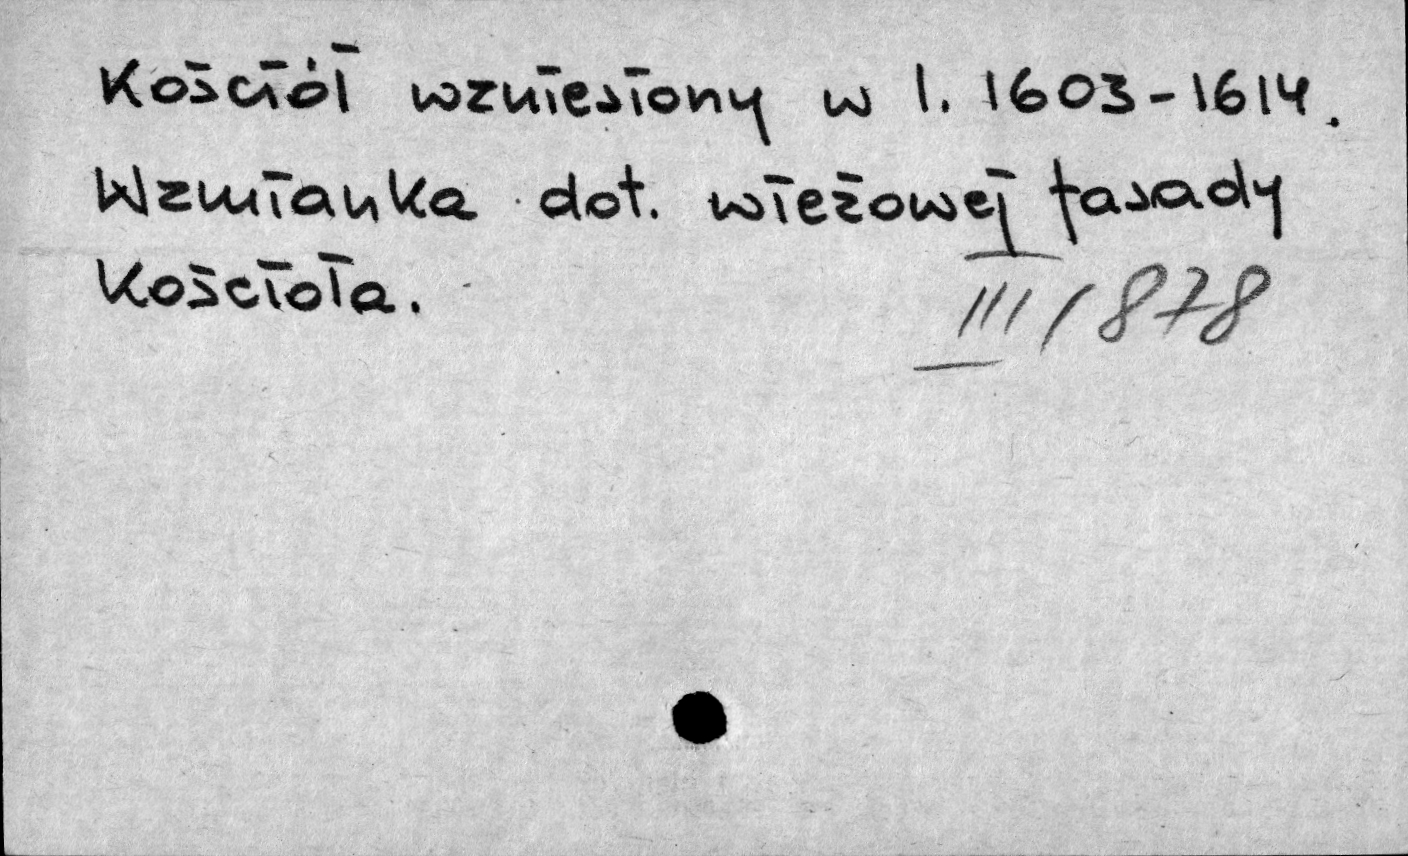 Kościół wzniesiony w l. 1603-1614.
Wzmianka dot. wieżowej fasady
Kościoła.
III/878